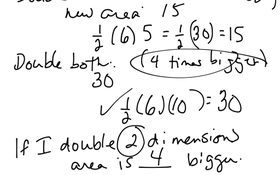 new area 15
½(6)5 = ½(30) = 15
Double both. (4 times bigger)
30
✓ ½(6)(10) = 30
If I double 2 dimensions
area is 4 bigger.